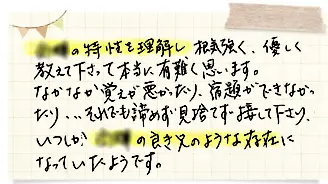 の特性を理解し 根気強く、優しく
教えて下さって本当に有難く思います。
なかなか覚えが悪かったり、宿題ができなかっ
たり…それでも諦めず見捨てず接して下さり、
いつしか の良き兄のような存在に
なっていたようです。